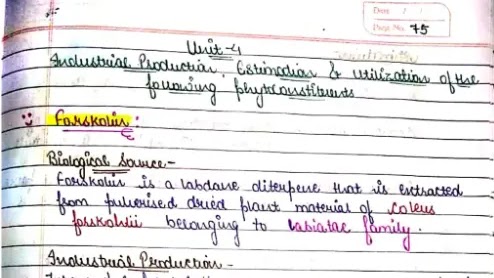 Date / /
Page No. 75
Unit-4
Industrial Production, Estimation & utilization of the
following phytoconstituents
Forskolin :
Biological Source -
Forskolin is a labdane diterpene that is extracted
from pulverised dried plant material of Coleus
forskohlii belonging to Labiatae family.
Industrial Production -